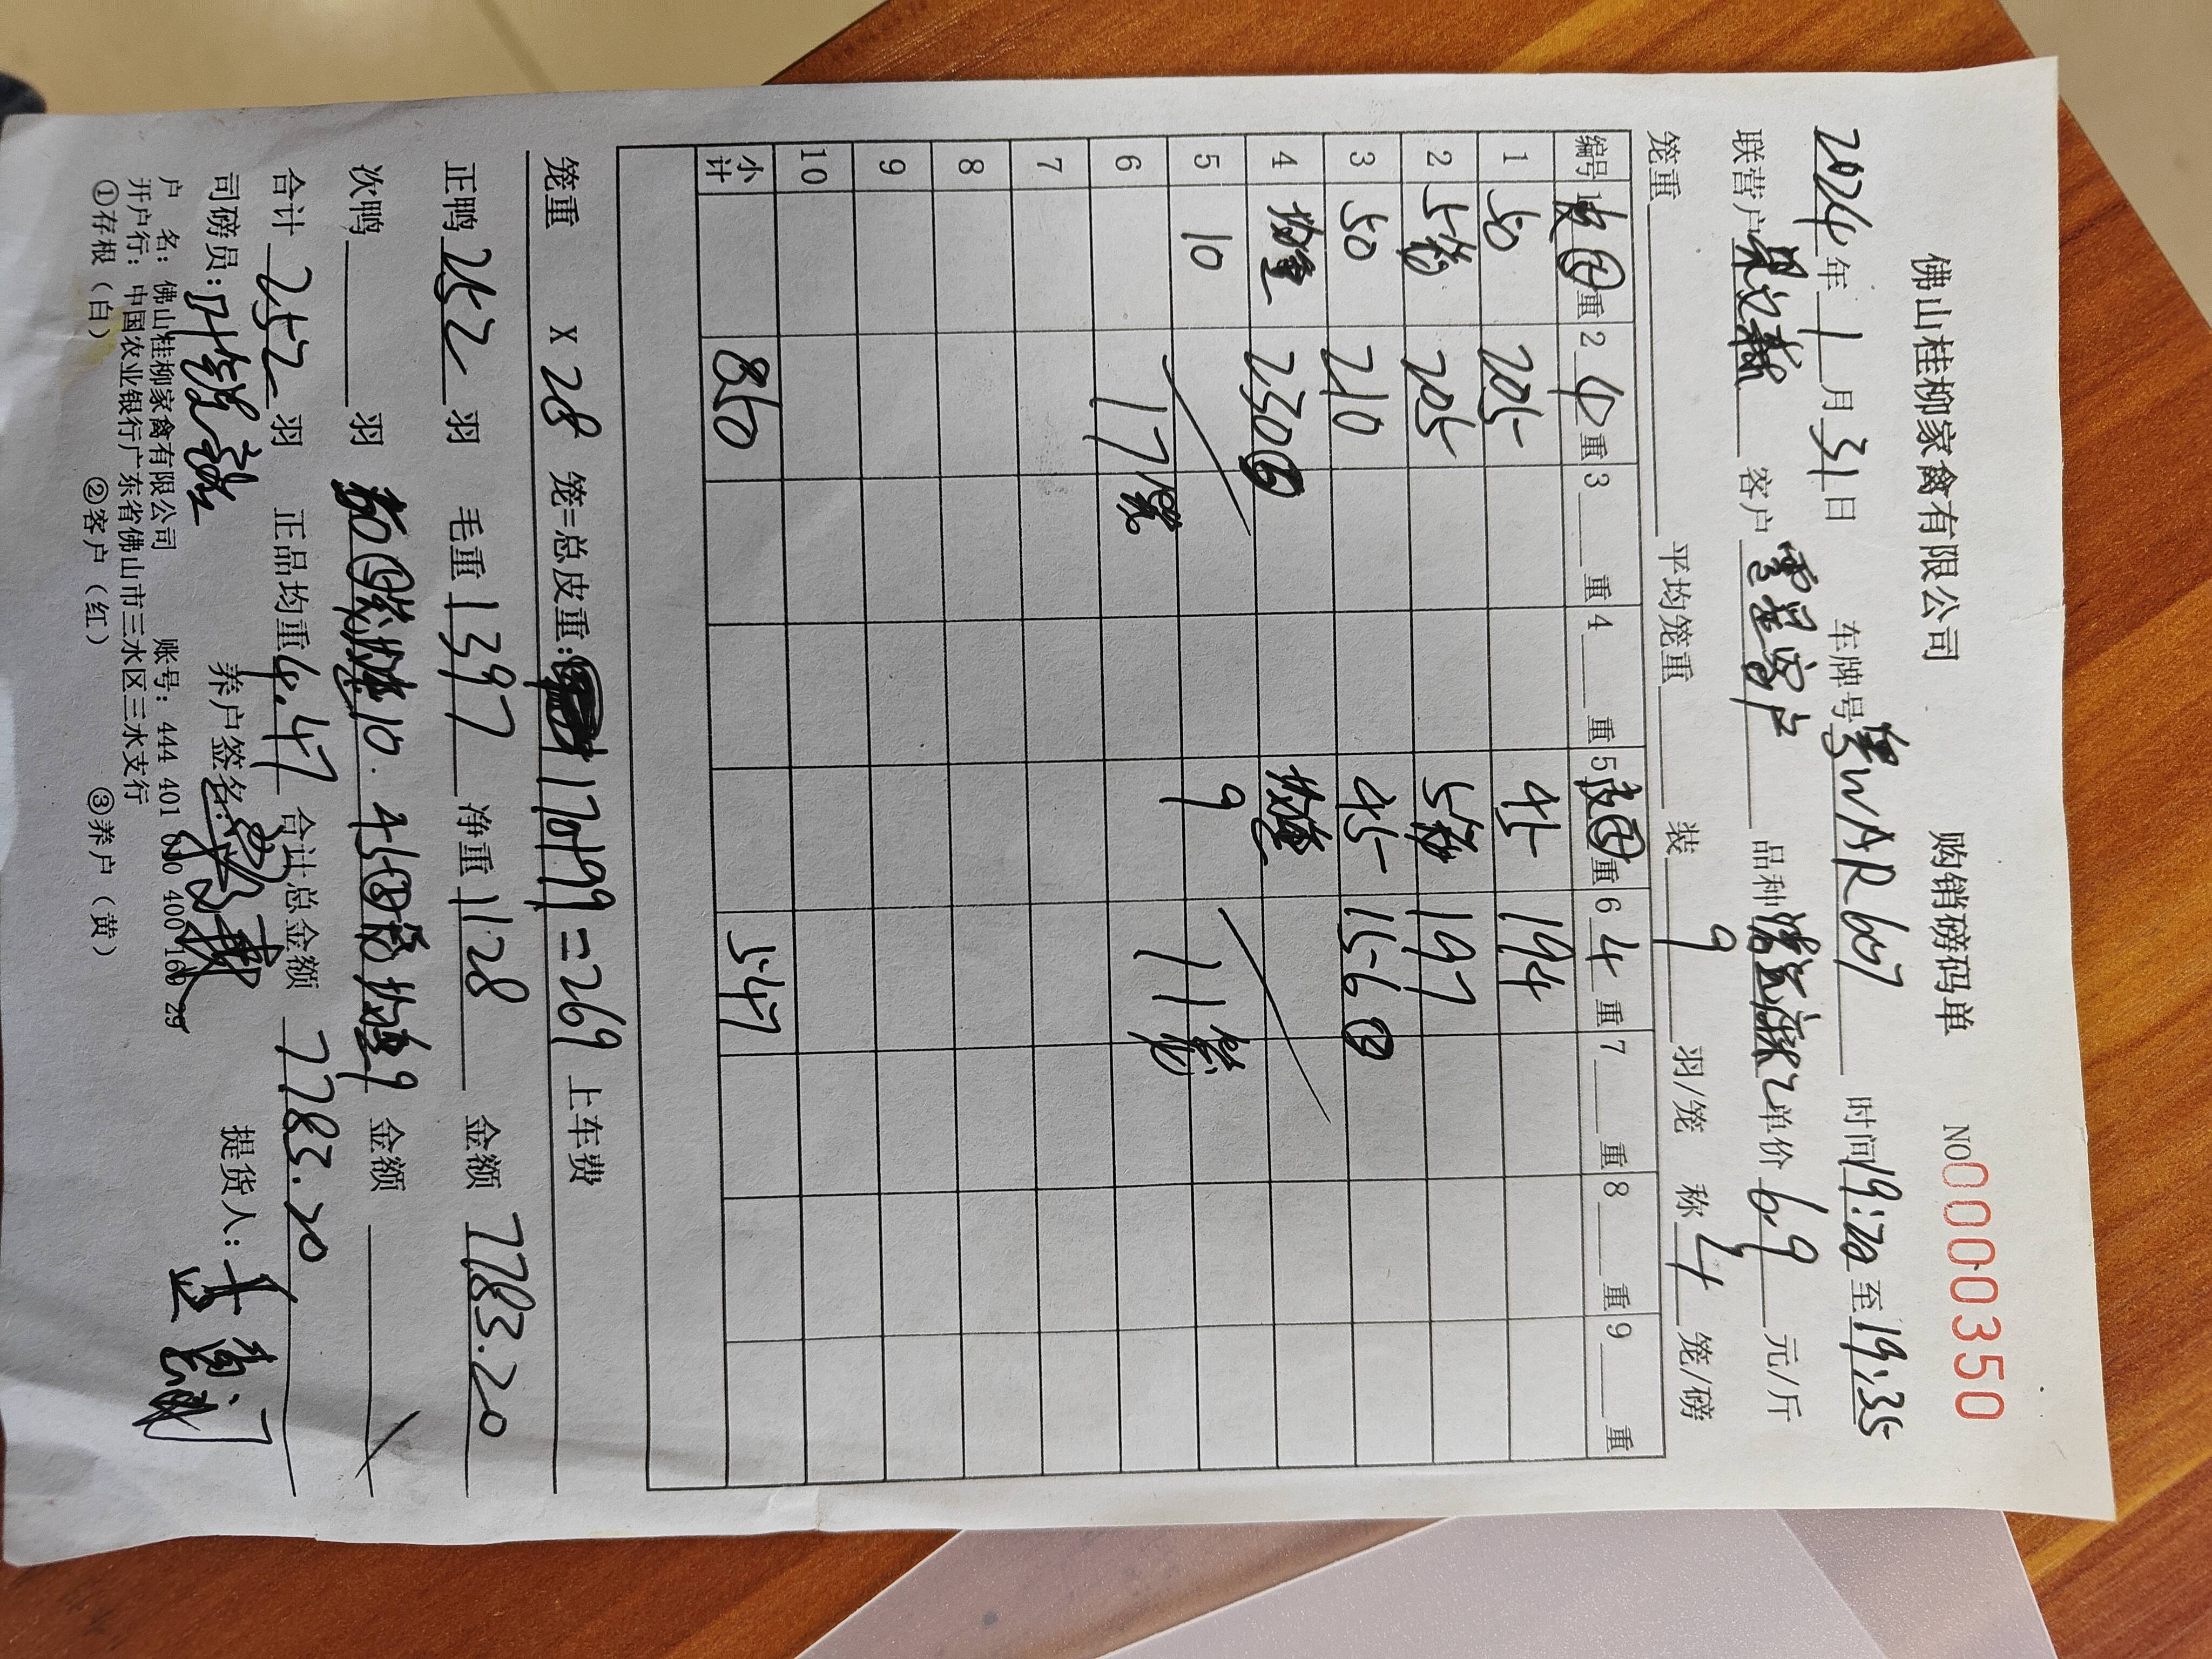 佛山桂柳家禽有限公司 购销磅码单 NO0000350
2024年1月31日 车牌号粤WAR607 时间19:20至19:35
联营户 客户零星客户 品种 单价6.9元/斤
笼重 平均笼重 装9羽/笼 称4笼/磅
编号 1皮重 2 4重 3 重 4 重 5皮重 6 4重 7 重 8 重 9 重
1 50 205 45 194
2 5笼 205 5笼 197
3 50 210 45 156③
4 均重 230⑤ 均重
5 10 9 11笼
6 17笼
7
8
9
10
小计 850 547
笼重 X 28 笼=总皮重: 170+99=269 上车费
正鸭252羽 毛重1397 净重1128 金额7783.20
次鸭 羽 均重10. 45 5笼 均重9 金额
合计252羽 正品均重4.47 合计总金额7783.20
司磅员: 养户签名: 提货人:
户 名:佛山桂柳家禽有限公司 账号:444 401 010 400 169 29
开户行:中国农业银行广东省佛山市三水区三水支行
①存根(白) ②客户(红) ③养户(黄)